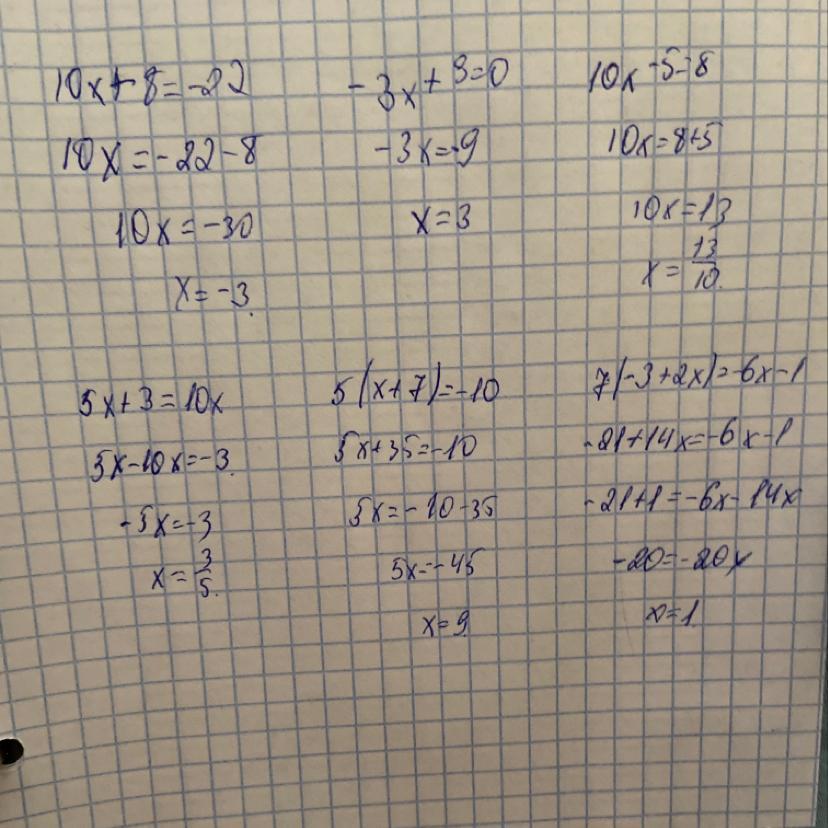 10x+8=-22
10x=-22-8
10x=-30
x=-3.
-3x+9=0
-3x=-9
x=3
10x-5=8
10x=8+5
10x=13
x=13/10.
5x+3=10x
5x-10x=-3.
-5x=-3
x=3/5.
5(x+7)=-10
5x+35=-10
5x=-10-35
5x=-45
x=9.
7(-3+2x)=-6x-1
-21+14x=-6x-1
-21+1=-6x-14x
-20=-20x
x=1.